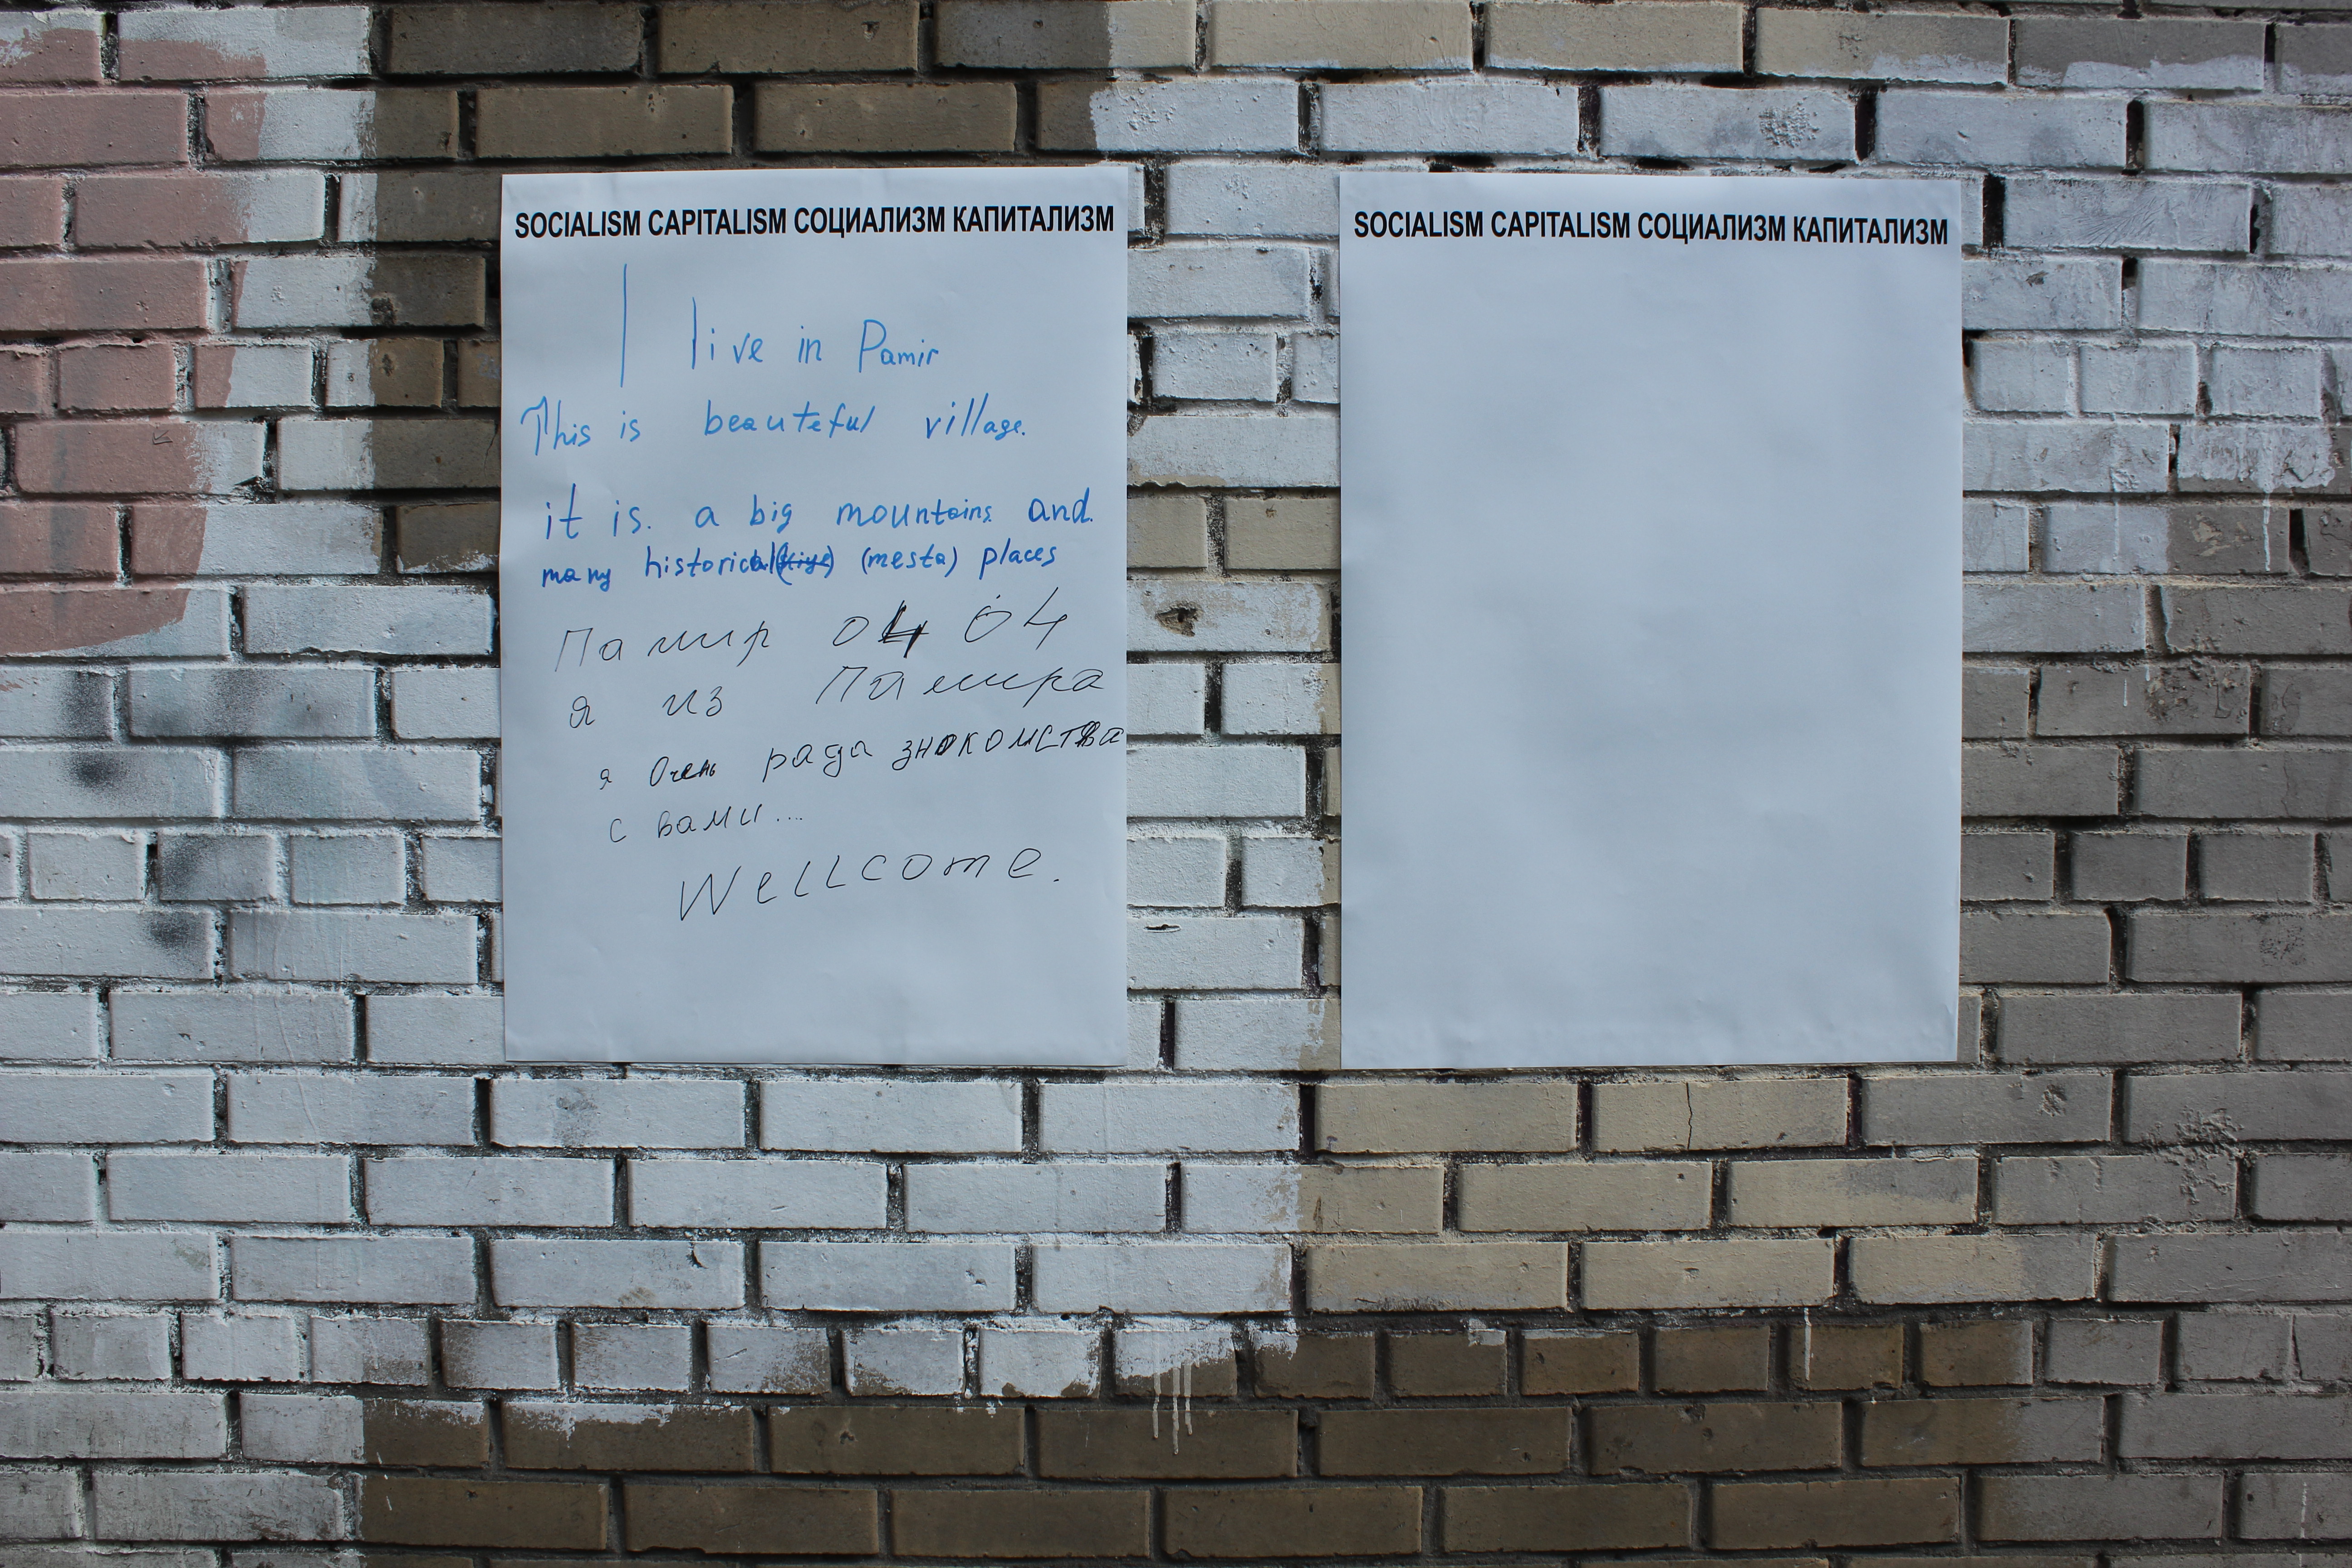 SOCIALISM CAPITALISM СОЦИАЛИЗМ КАПИТАЛИЗМ
I live in Pamir
This is beauteful village.
it is. a big mountains. and.
many historical (mesta) places
Памир 04 04
я из Памира
я Очень рада знокомства
с вами...
Wellcome.
SOCIALISM CAPITALISM СОЦИАЛИЗМ КАПИТАЛИЗМ